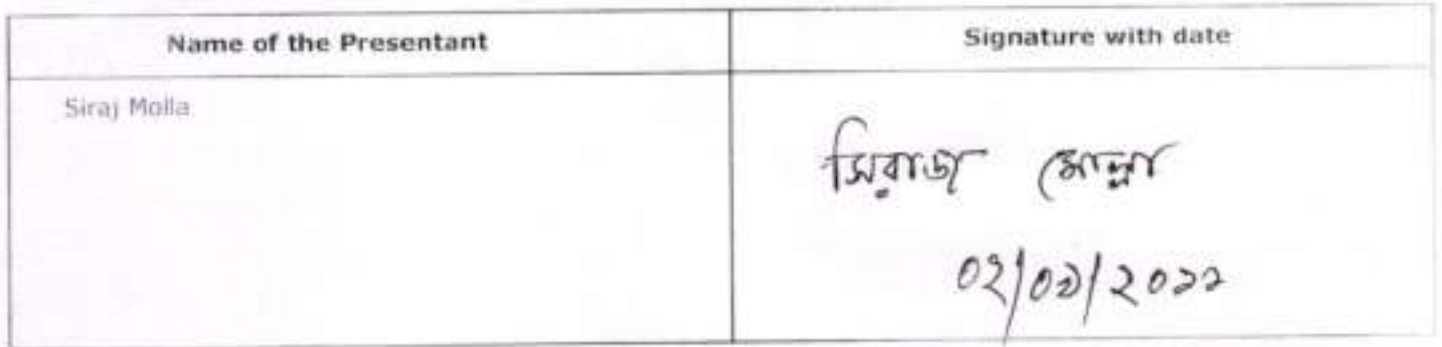 Name of the Presentant
Signature with date
Siraj Molla
সিরাজ মোল্লা
০২/০১/২০২২